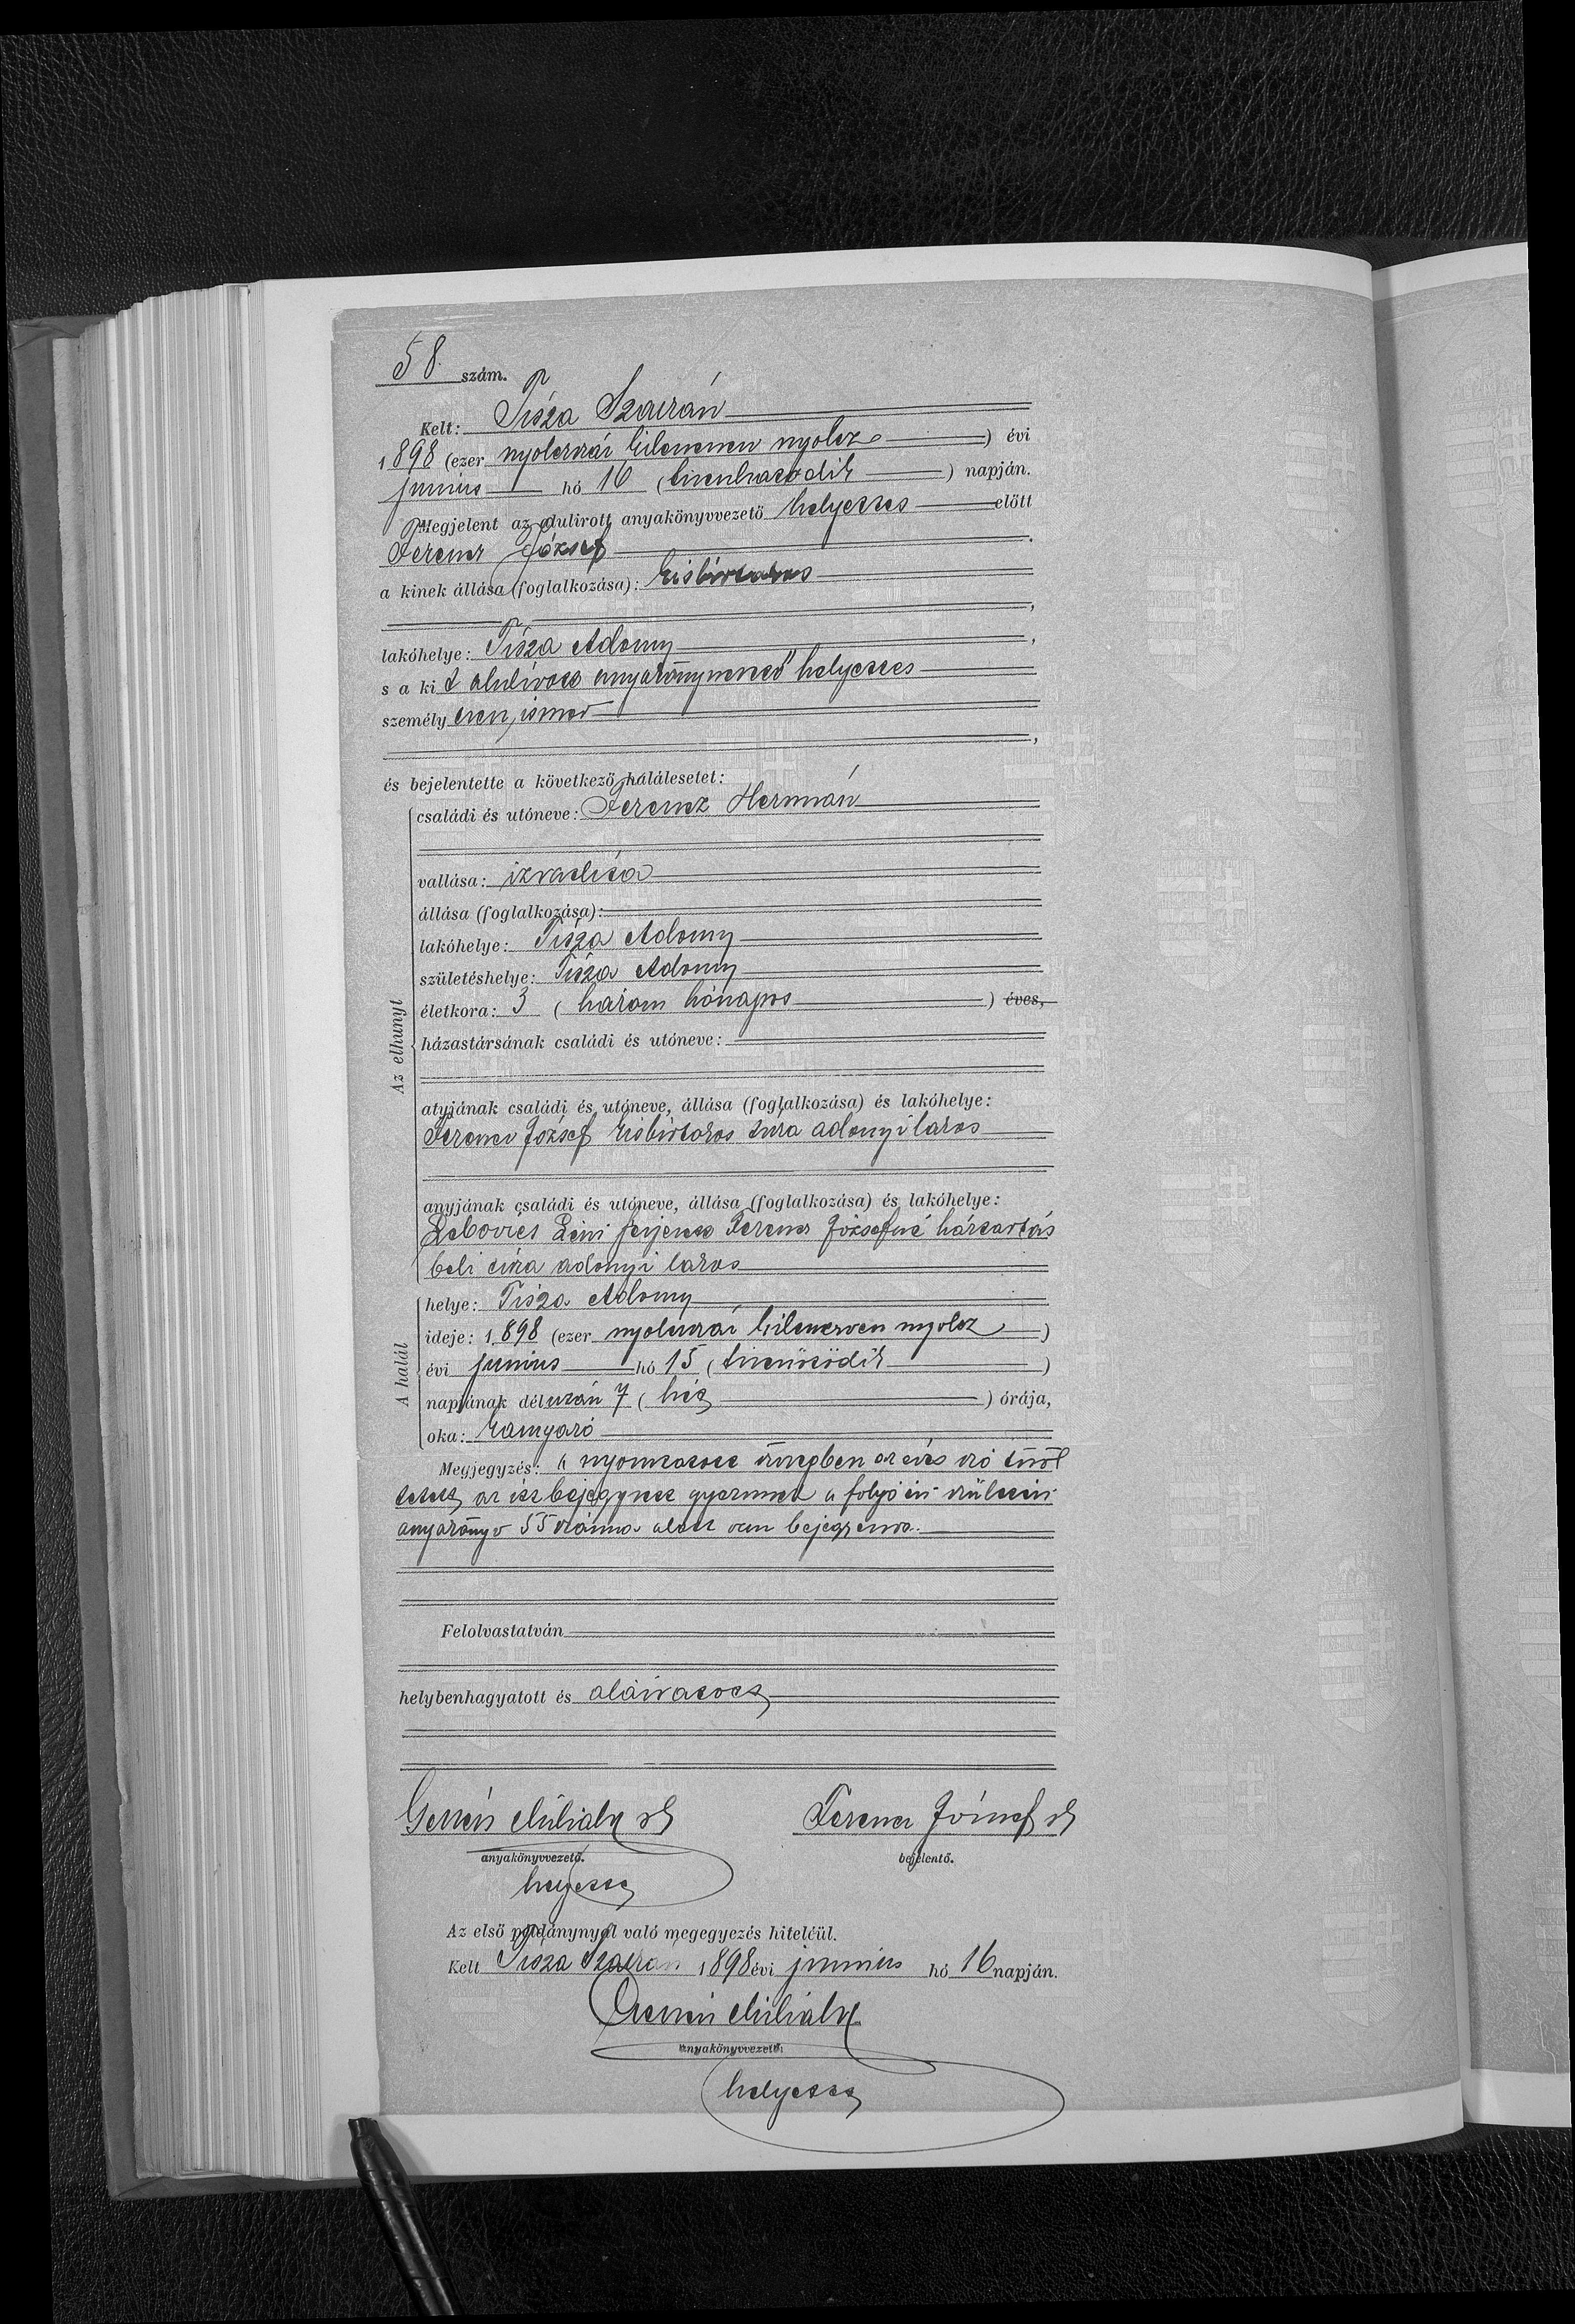 58. szám.
Kelt: Tisza Szalván
1898 (ezer nyolczszáz kilenczven nyolcz) évi
junius hó 16 (tizenhatodik) napján.
Megjelent az alulirott anyakönyvvezető helyettes előtt
Ferencz József
a kinek állása (foglalkozása): kisbirtokos
,
lakóhelye: Tisza Adony,
s a kit alulirott anyakönyvvezető helyettes
személyesen ismer
,
és bejelentette a következő halálesetet:
Az elhunyt
családi és utóneve: Ferencz Hermán
vallása: izraelita
állása (foglalkozása):
lakóhelye: Tisza Adony
születéshelye: Tisza Adony
életkora: 3 (három hónapos) éves,
házastársának családi és utóneve:
atyjának családi és utóneve, állása (foglalkozása) és lakóhelye:
Ferencz József kisbirtokos tisza adonyi lakos
anyjának családi és utóneve, állása (foglalkozása) és lakóhelye:
Lebovics Leni férjezett Ferencz Józsefné háztartás
beli tisza adonyi lakos
A halál
helye: Tisza Adony
ideje: 1898 (ezer nyolczszáz kilenczven nyolcz)
évi junius hó 15 (tizenötödik)
napjának délután 7 (hét) órája,
oka: kanyaró
Megjegyzés: a nyomtatott szövegben az éves szó töröl
tetett, az itt bejegyzett gyermek a folyó évi születési
anyakönyv 55 száma alatt van bejegyezve.
Felolvastatván
helybenhagyatott és aláiratott
Mihály sk Ferencz József sk
anyakönyvvezető. bejelentő.
helyettes
Az első példánynyal való megegyezés hiteléül.
Kelt Tisza Szalván 1898 évi junius hó 16 napján.
Mihály
anyakönyvvezető.
helyettes